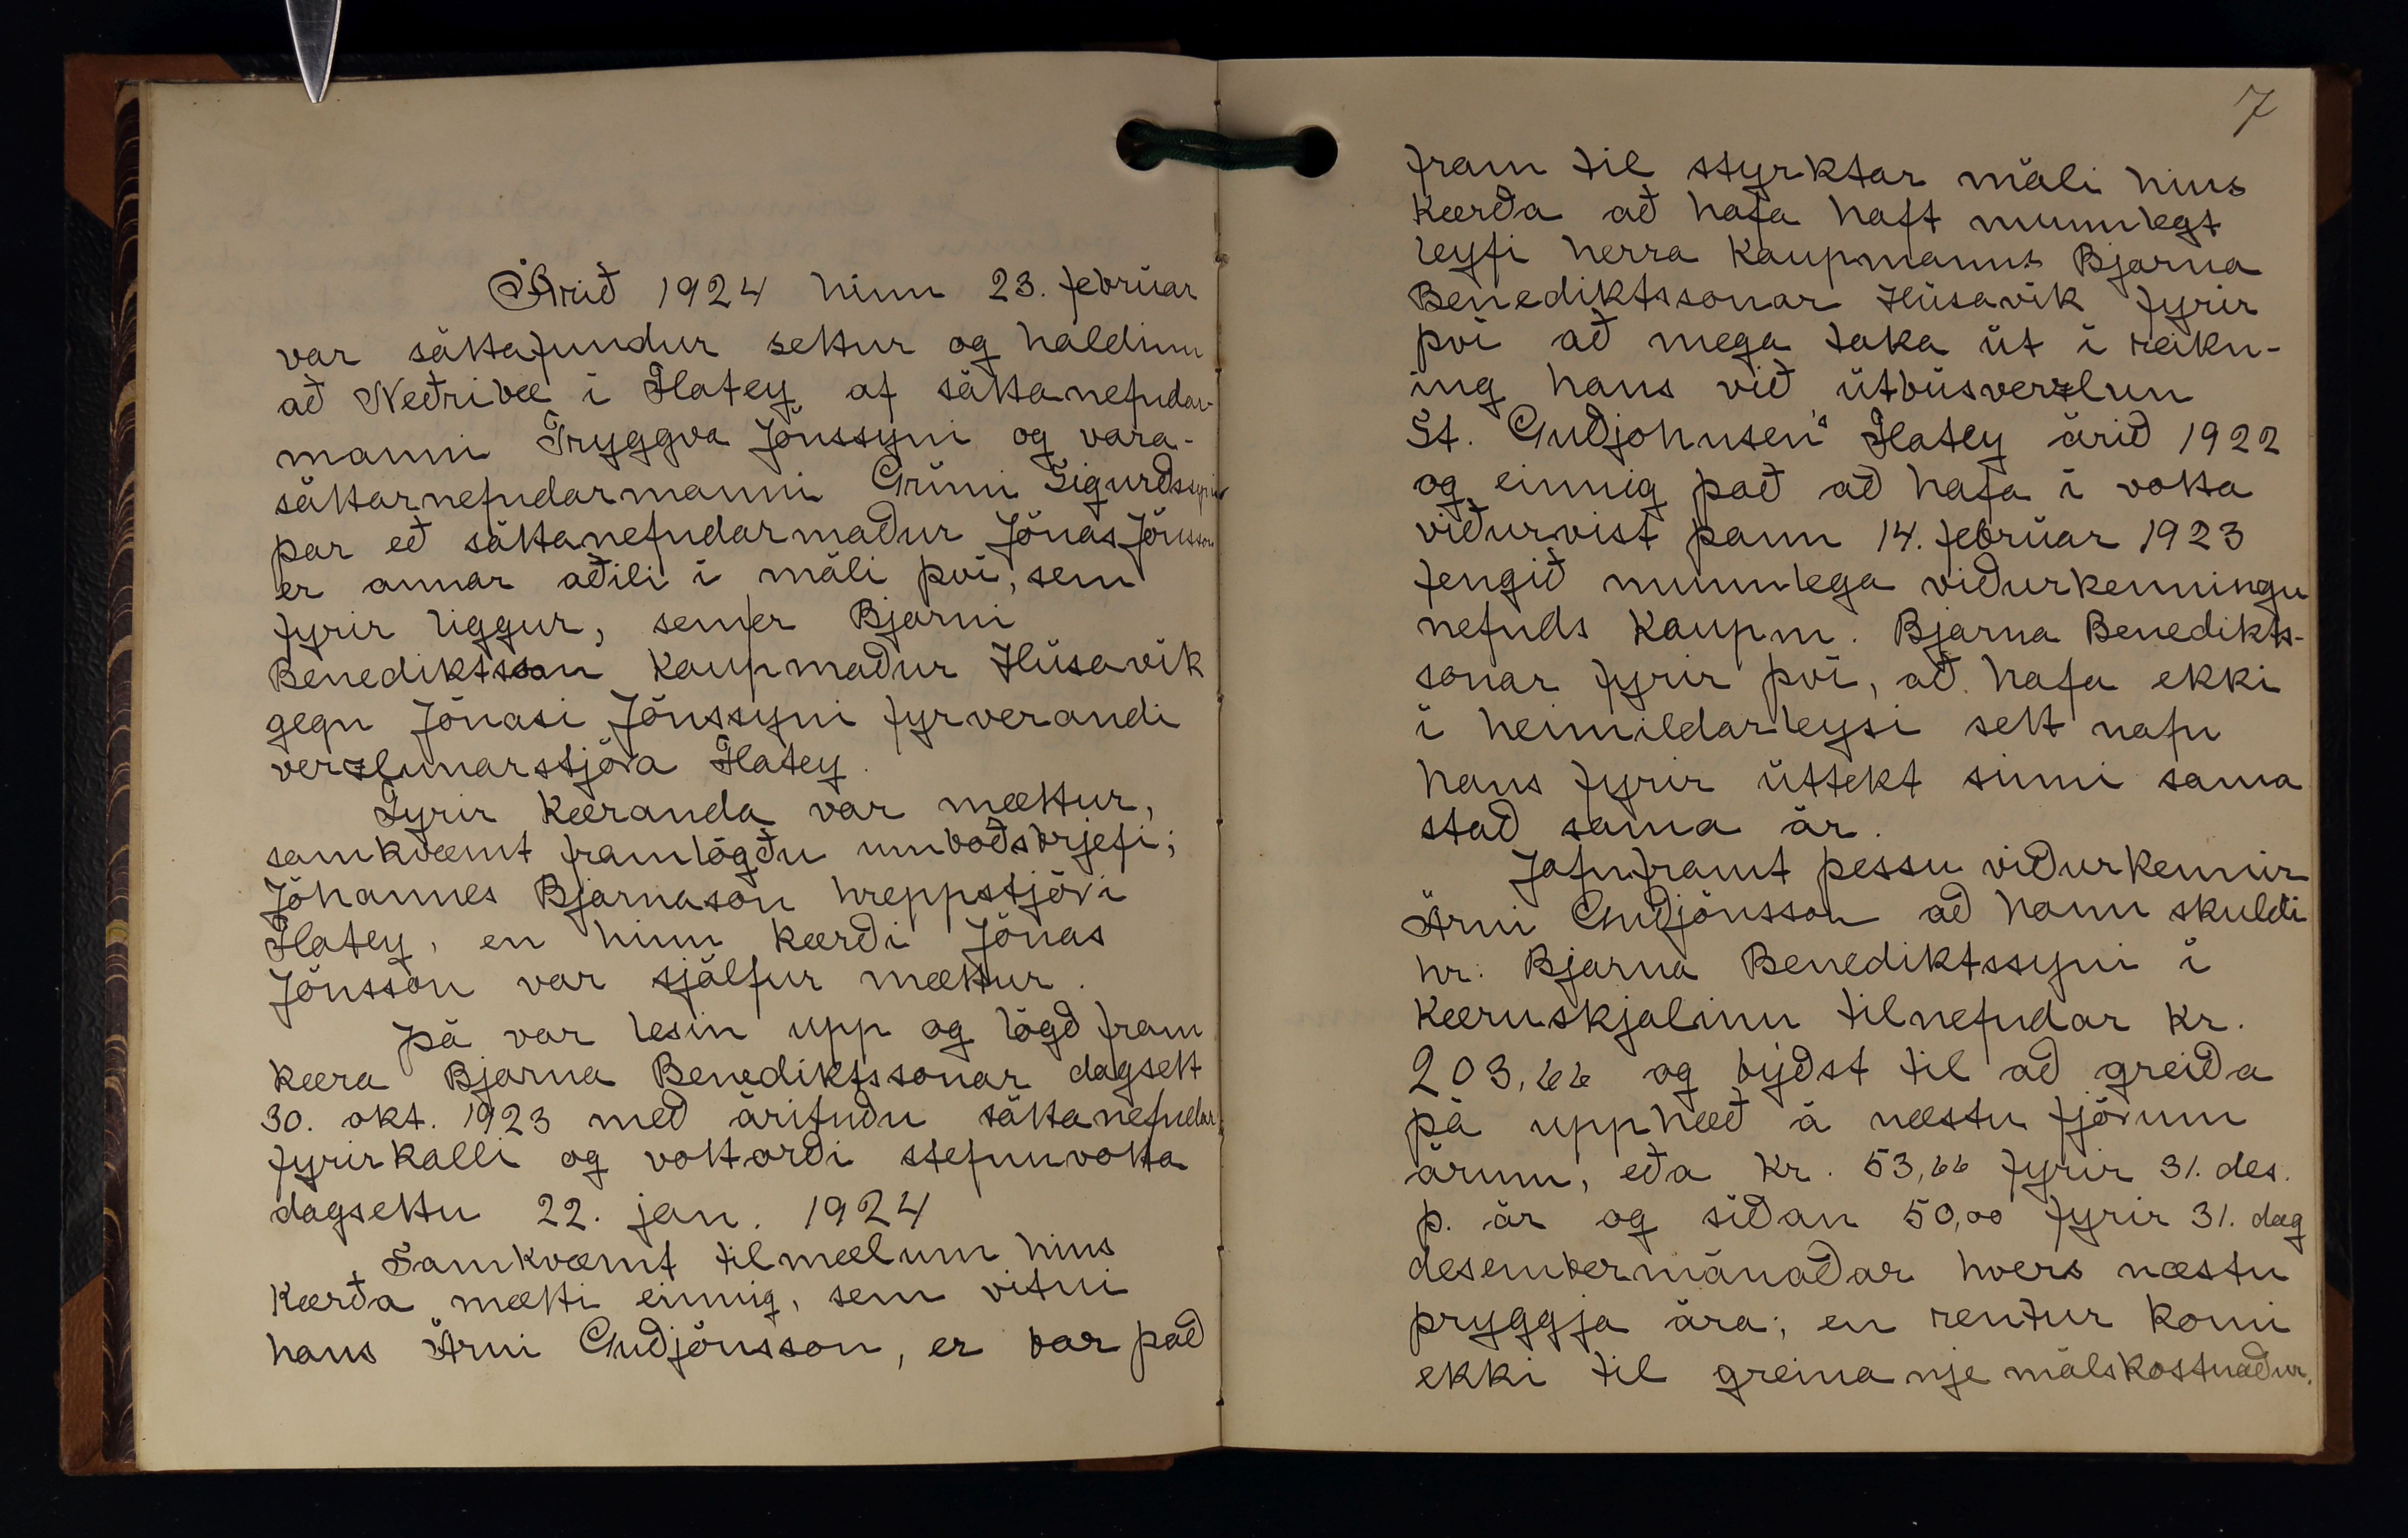 Árið 1924 hinn 23. febrúar
var sáttafundur settur og haldinn
að Neðribæ í Flatey af sáttanefndar-
manni Tryggva Jónssyni og vara-
sáttarnefndarmanni Grími Sigurðssyni
þar eð sáttanefndarmaður Jónas Jónsson
er annar aðili í máli því, sem
fyrir liggur, sem er Bjarni
Benediktsson kaupmaður Húsavík
gegn Jónasi Jónssyni fyrverandi
verzlunarstjóra Flatey.
Fyrir kæranda var mættur,
samkvæmt framlögðu umboðsbrjefi;
Jóhannes Bjarnason hreppstjóri
Flatey, en hinn kærði Jónas
Jónsson var sjálfur mættur.
Þá var lesin upp og lögð fram
kæra Bjarna Benediktssonar dagsett
30. okt. 1923 með árituðu sáttanefndar
fyrirkalli og vottorði stefnuvotta
dagsettu 22. jan. 1924
Samkvæmt tilmælum hins
kærða mætti einnig, sem vitni
hans Árni Guðjónsson, er bar það
7
fram til styrktar máli hins
kærða að hafa haft munnlegt
leyfi herra kaupmanns Bjarna
Benediktssonar Húsavík fyrir
því að mega taka út í reikn-
ing hans við útbúsverzlun
St. Guðjohnsen's Flatey árið 1922
og einnig það að hafa í votta
viðurvist þann 14. febrúar 1923
fengið munnlega viðurkenningu
nefnds kaupm. Bjarna Benedikts-
sonar fyrir því, að hafa ekki
í heimildarleysi sett nafn
hans fyrir úttekt sinni sama
stað sama ár.
Jafnframt þessu viðurkennir
Árni Guðjónsson að hann skuldi
hr. Bjarna Benediktssyni í
kæruskjalinu tilnefndar kr.
203,66 og býðst til að greiða
þá upphæð á næstu fjórum
árum, eða kr. 53,66 fyrir 31. des.
þ. ár og síðan 50,00 fyrir 31. dag
desembermánaðar hvers næstu
þryggja ára; en rentur komi
ekki til greina nje málskostnaður.